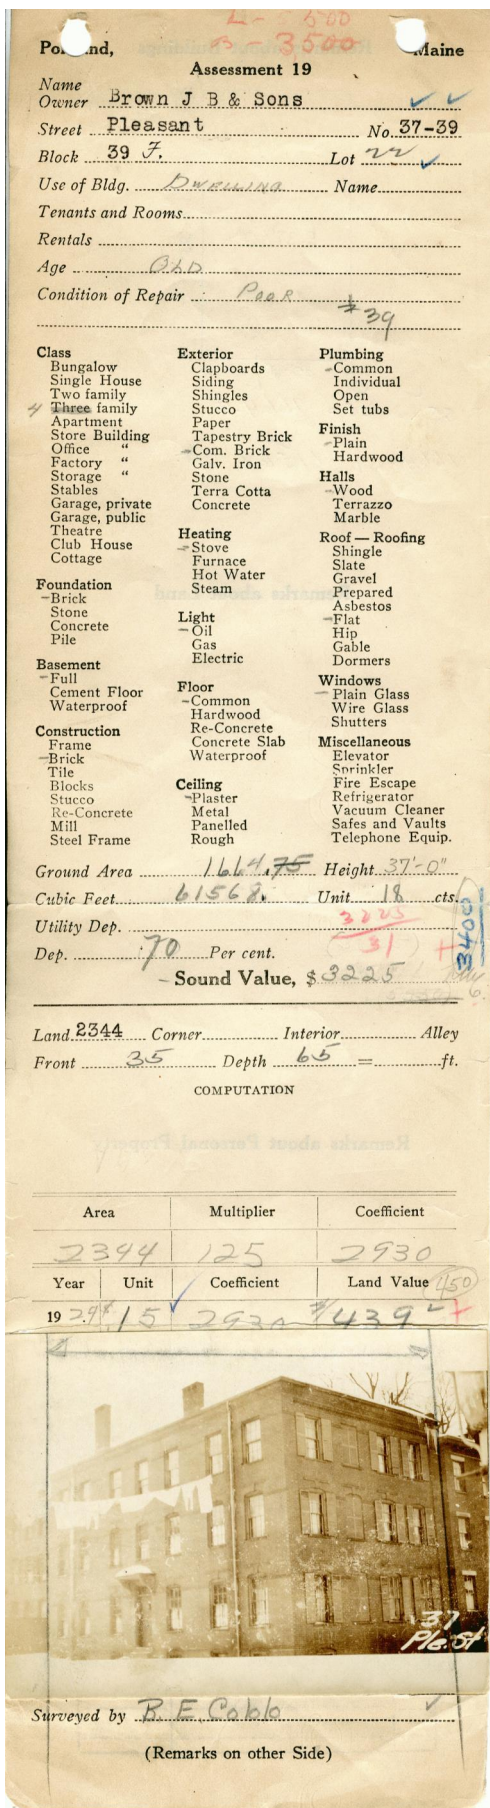 L - 5500
B - 3500
Portland, Maine
Assessment 19
Name
Owner Brown J B & Sons
Street Pleasant No. 37-39
Block 39 F. Lot 22
Use of Bldg. Dwelling Name
Tenants and Rooms
Rentals
Age Old
Condition of Repair Poor
#39
Class
Bungalow
Single House
Two family
4 Three family
Apartment
Store Building
Office "
Factory "
Storage "
Stables
Garage, private
Garage, public
Theatre
Club House
Cottage
Foundation
-Brick
Stone
Concrete
Pile
Basement
-Full
Cement Floor
Waterproof
Construction
Frame
-Brick
Tile
Blocks
Stucco
Re-Concrete
Mill
Steel Frame
Exterior
Clapboards
Siding
Shingles
Stucco
Paper
Tapestry Brick
-Com. Brick
Galv. Iron
Stone
Terra Cotta
Concrete
Heating
-Stove
Furnace
Hot Water
Steam
Light
-Oil
Gas
Electric
Floor
-Common
Hardwood
Re-Concrete
Concrete Slab
Waterproof
Ceiling
-Plaster
Metal
Panelled
Rough
Plumbing
-Common
Individual
Open
Set tubs
Finish
-Plain
Hardwood
Halls
-Wood
Terrazzo
Marble
Roof — Roofing
Shingle
Slate
Gravel
Prepared
Asbestos
-Flat
Hip
Gable
Dormers
Windows
-Plain Glass
Wire Glass
Shutters
Miscellaneous
Elevator
Sprinkler
Fire Escape
Refrigerator
Vacuum Cleaner
Safes and Vaults
Telephone Equip.
Ground Area 1664.75 Height 37'-0"
Cubic Feet 61568. Unit 18 cts.
Utility Dep. 3225
31
3400
Dep. 70 Per cent.
- Sound Value, $ 3225
Land 2344 Corner Interior Alley
Front 35 Depth 65 = ft.
COMPUTATION
Area Multiplier Coefficient
2344 125 2930
Year Unit Coefficient Land Value 450
19 24 15 2930 $439
37
Ple. St
Surveyed by B. E. Cobb
(Remarks on other Side)